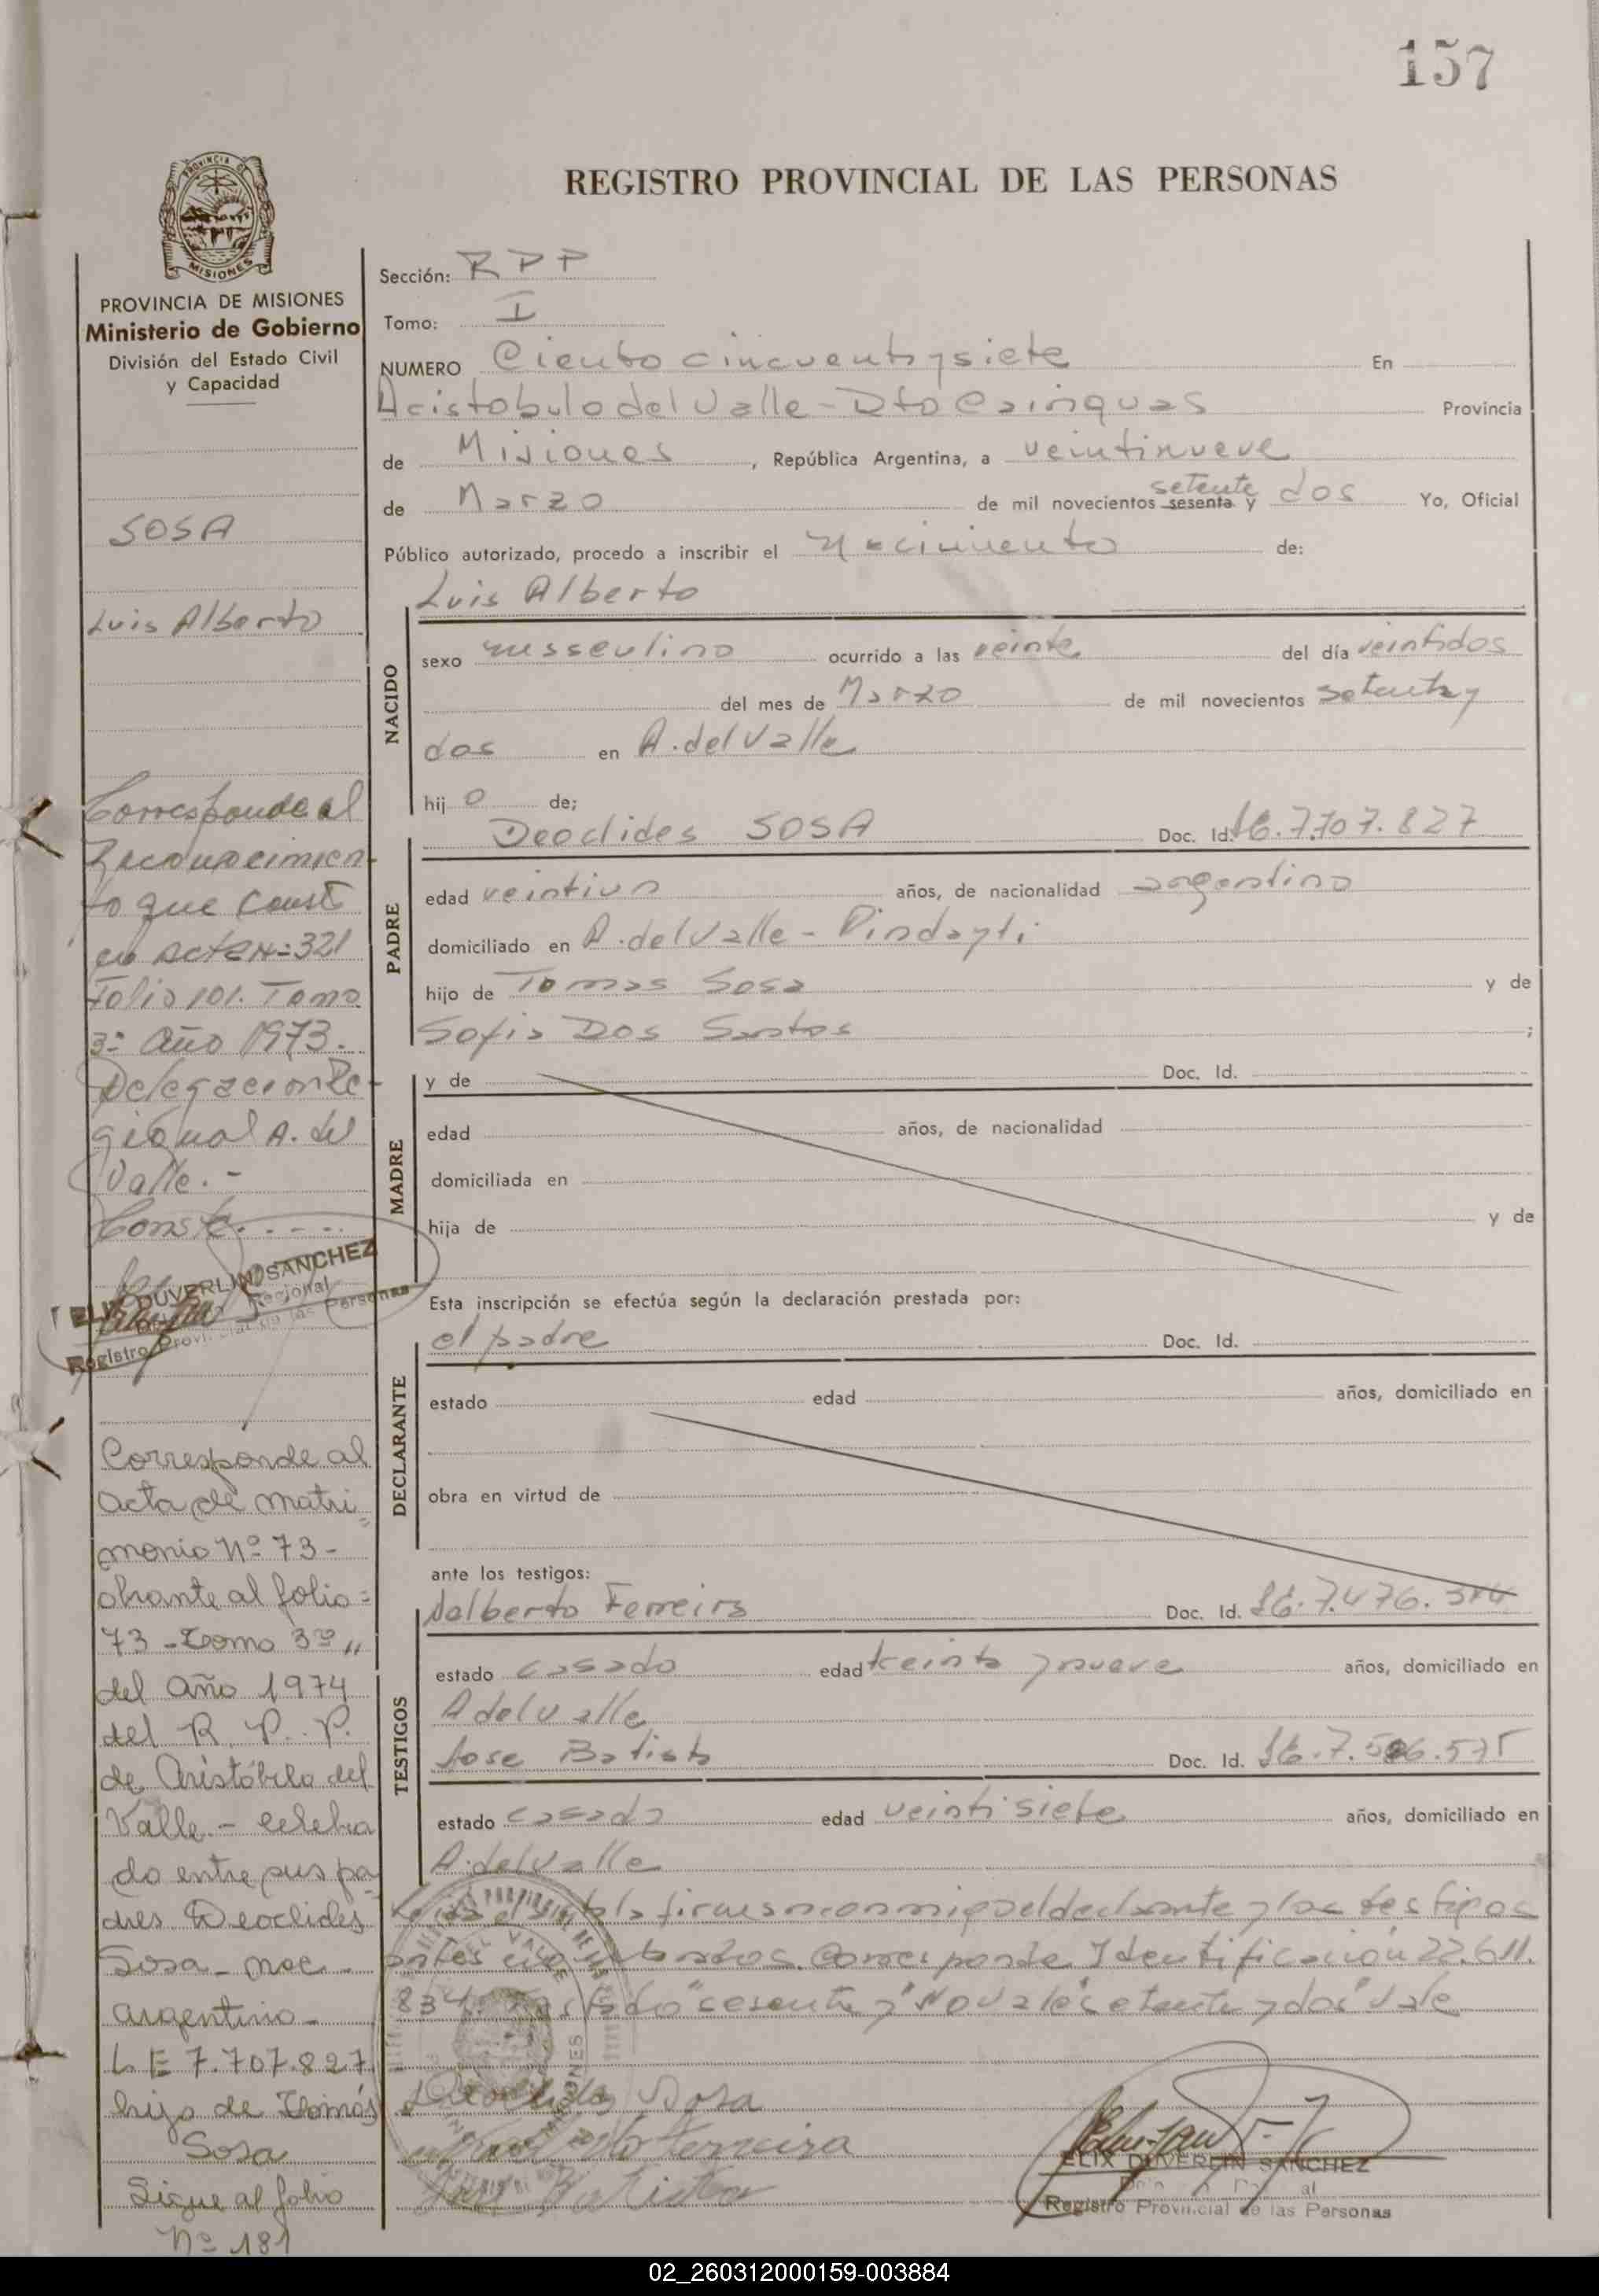 157
REGISTRO PROVINCIAL DE LAS PERSONAS
PROVINCIA DE MISIONES
Ministerio de Gobierno
División del Estado Civil
y Capacidad
SOSA
Luis Alberto
Corresponde al
Reconocimien
to que Const
en acta Nº 321
Folio 101. Tomo
3º Año 1973.
Delegacion Re
gional A. del
Valle.-
Conste.-----
ELIX DUVERLIN SANCHEZ
Regional
Registro Provincial de las Personas
Corresponde al
acta de matri
monio Nº 73-
obrante al folio=
73 - Tomo 3º "
del Año 1974
del R. P. P.
de Aristóbulo del
Valle.- celebra
do entre sus pa
dres Deoclides
Sosa - nac.
argentino -
L E 7.707.827
hijo de Tomás
Sosa
Sigue al folio
Nº 181
Sección: RPP
Tomo: I
NUMERO Ciento cincuenta y siete En
Aristobulo del Valle - Dto Cainguas Provincia
de Misiones, República Argentina, a veintinueve
de Marzo de mil novecientos sesenta y setenta dos Yo, Oficial
Público autorizado, procedo a inscribir el Nacimiento de:
Luis Alberto
NACIDO
sexo masculino ocurrido a las veinte del día veintidos
del mes de Marzo de mil novecientos setenta y
dos en A. del Valle
hij o de;
Deoclides SOSA Doc. Id. 7.707.827
PADRE
edad veintiun años, de nacionalidad argentino
domiciliado en A. del Valle - Pindayti
hijo de Tomas Sosa y de
Sofia Dos Santos ;
MADRE
y de Doc. Id.
edad años, de nacionalidad
domiciliada en
hija de y de
Esta inscripción se efectúa según la declaración prestada por:
el padre Doc. Id.
DECLARANTE
estado edad años, domiciliado en
obra en virtud de
ante los testigos:
Adalberto Ferreira Doc. Id. 7.476.
TESTIGOS
estado casado edad treinta y nueve años, domiciliado en
A del Valle
Jose Batista Doc. Id.
estado casado edad veintisiete años, domiciliado en
A. del Valle
Leida el acta la firman conmigo el declarante y los testigos
antes Corresponde Identificación 22.611.
834. "sesenta y" No vale "setenta y dos" Vale
Deoclides Sosa
Adalberto Ferreira
Jose Batista
ELIX DUVERLIN SANCHEZ
Registro Provincial de las Personas
02_260312000159-003884